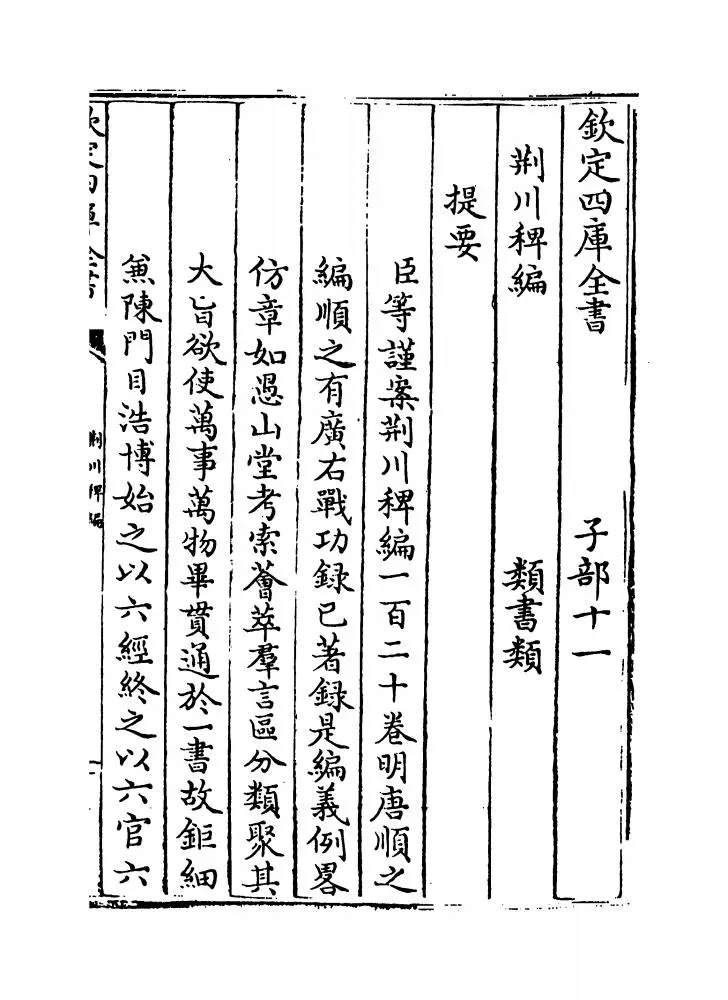 欽定四庫全書　子部十一
荆川稗編　類書類
提要
臣等謹案荆川稗編一百二十卷明唐順之
編順之有廣右戰功録已著録是編義例畧
仿章如愚山堂考索薈萃羣言區分類聚其
大旨欲使萬事萬物畢貫通於一書故鉅細
兼陳門目浩博始之以六經終之以六官六
欽定四庫全書
荆川稗編
一